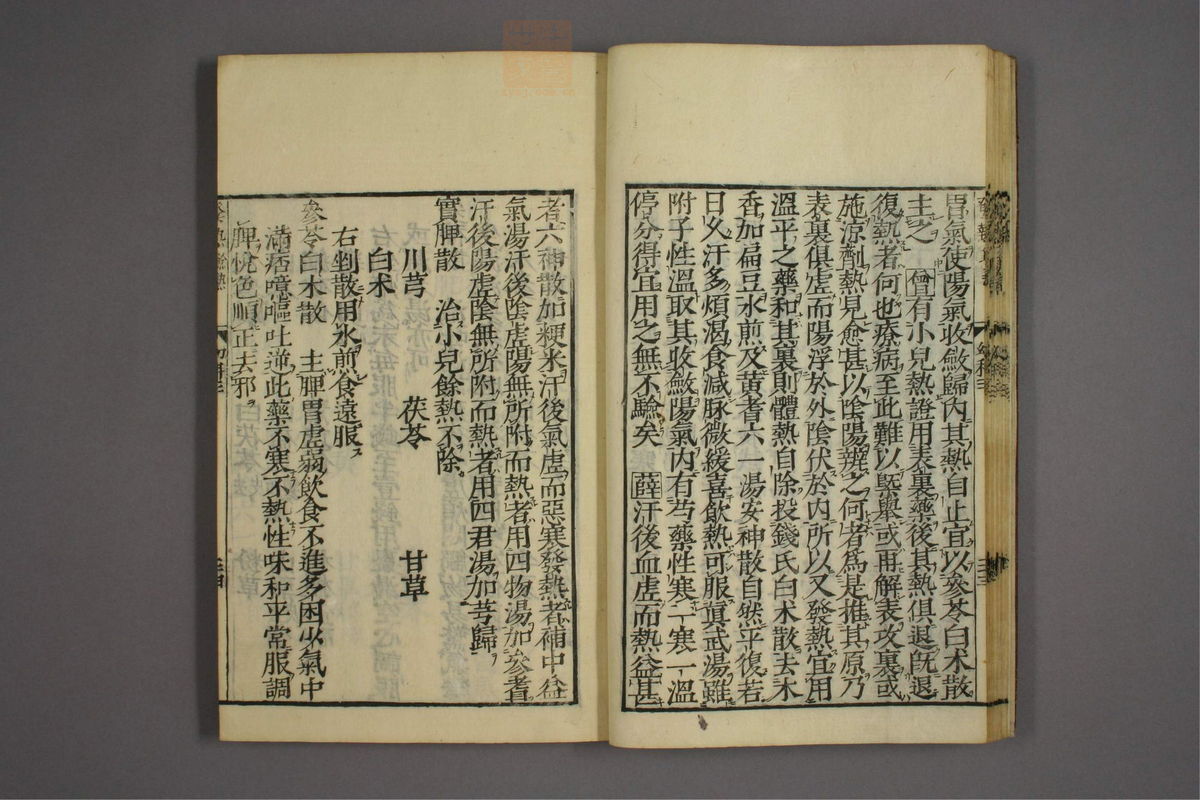 胃氣使陽氣收斂歸内其熱自止宜以參苓白术散
主之 曾有小兒熱證用表裏藥後其熱俱退既退
復熱者何也療病至此難以槩舉或再解表攻裏或
施涼劑熱見愈甚以陰陽辨之何者爲是推其原乃
表裏俱虚而陽浮於外陰伏於内所以又發熱宜用
溫平之藥和其裏則體熱自除投錢氏白术散去木
香加扁豆水煎及黄耆六一湯安神散自然平復若
日久汗多煩渴食減脉微緩喜飲熱可服眞武湯雖
附子性溫取其收斂陽氣内有芍藥性寒一寒一溫
停分得宜用之無不驗矣 薛汗後血虚而熱益甚
者六神散加粳米汗後氣虚而惡寒發熱者補中益
氣湯汗後陰虚陽無所附而熱者用四物湯加參耆
汗後陽虚陰無所附而熱者用四君湯加芎歸
實脾散 治小兒餘熱不除
川芎 茯苓 甘草
白术
右剉散用水煎食遠服
參苓白术散 主脾胃虚弱飲食不進多困少氣中
滿痞噫嘔吐逆此藥不寒不熱性味和平常服調
脾悦色順正去邪